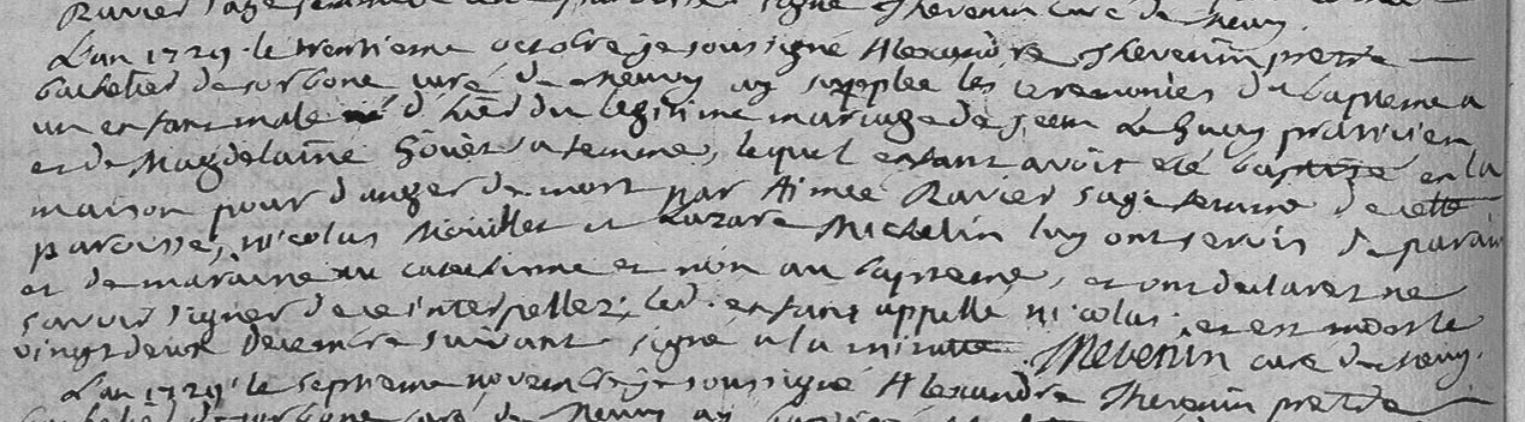 Ravier sage femme signé Thevenin curé de Neuvy.
L'an 1729. le trentieme octobre je soussigné Alexandre Thevenin pretre
bachelier de sorbone curé de Neuvy ay supplee les ceremonies du bapteme a
un enfant male né d'hier du legitime mariage de Jean Le Guay praticien
et de Magdelaine sa femme, lequel enfant avoit eté baptise en la
maison pour danger de mort par Aimée Ravier sage femme de cette
paroisse, nicolas et Lazare Michelin luy ont servis de parain
et de maraine au catechisme et non au bapteme, et ont declarez ne
savoir signer de ce interpellez; led. enfant appellé nicolas, et est mort le
vingt deux decembre suivant signé a la minutte. Thevenin curé de Neuvy.
L'an 1729. le septieme novembre je soussigné Alexandre Thevenin pretre
bachelier de sorbone curé de Neuvy ay